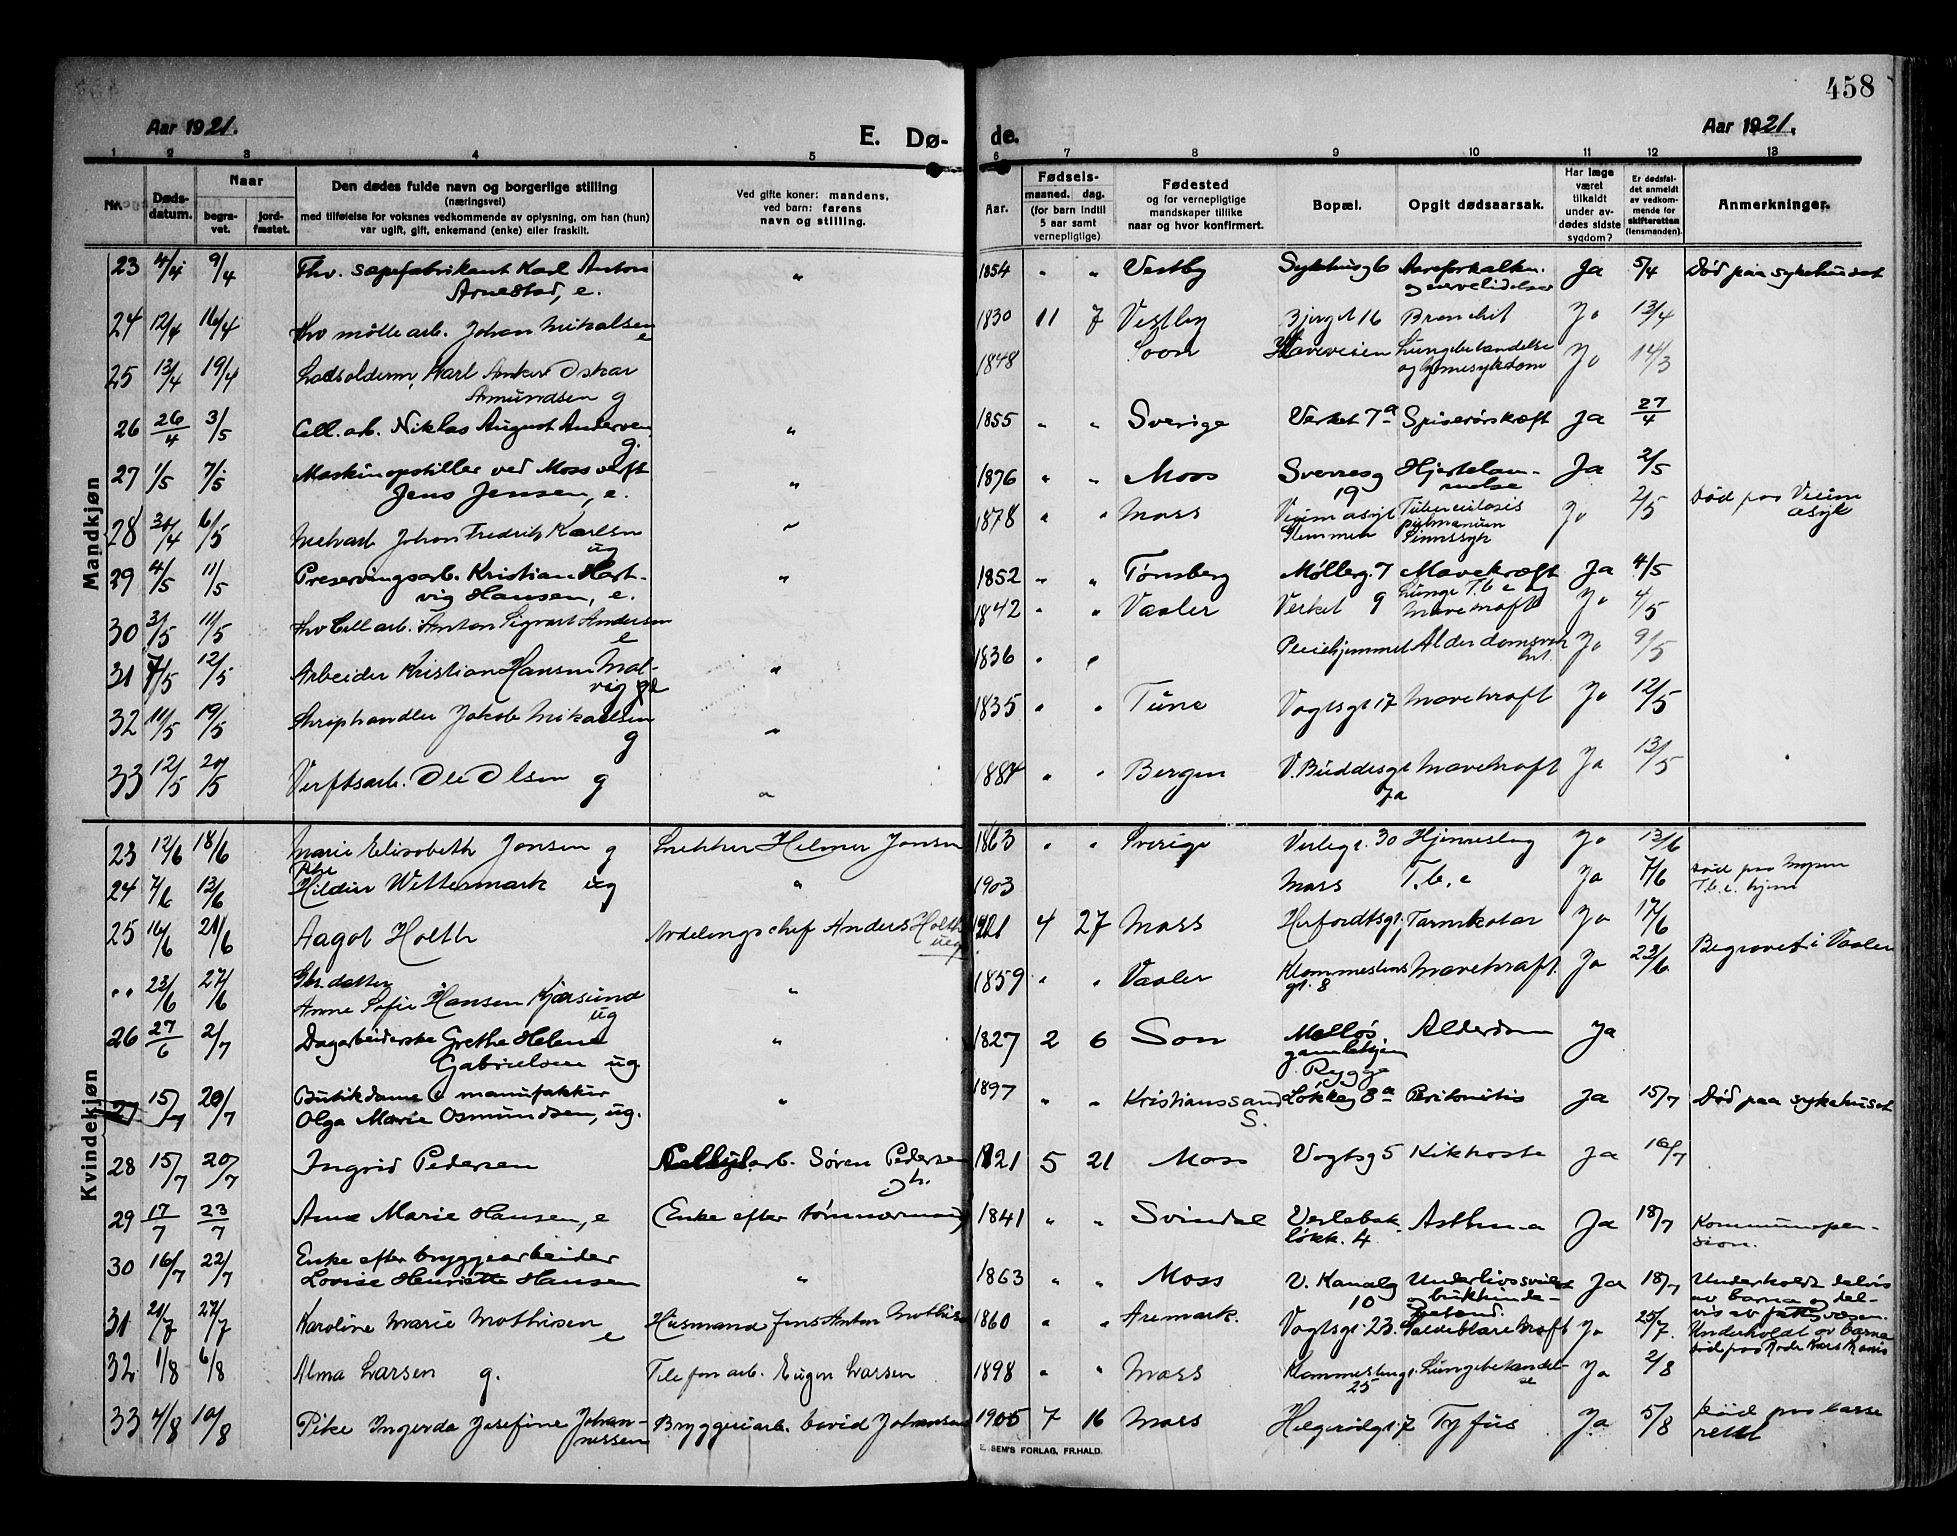 458
Aar 1921.
E. Dø-
de.
Aar 1921.
1 2 3 4 5 6 7 8 9 10 11 12 13
Nr.
Døds-
datum.
Naar
begra-
vet.
jord-
fæstet.
Den dødes fulde navn og borgerlige stilling
(næringsvei)
med tilføielse for voksnes vedkommende av oplysning, om han (hun)
var ugift, gift, enkemand (enke) eller fraskilt.
Ved gifte koner: mandens,
ved barn: farens
navn og stilling.
Aar.
Fødsels-
maaned. dag.
(for barn indtil
5 aar samt
vernepligtige)
Fødested
og for vernepligtige
mandskaper tillike
naar og hvor konfirmert.
Bopæl.
Opgit dødsaarsak.
Har læge
været
tilkaldt
under av-
dødes sidste
sygdom?
Er dødsfal-
det anmeldt
av vedkom-
mende for
skifteretten
(lensmanden).
Anmerkninger.
Mandkjøn
23 4/4 9/4 Fhv. sæpefabrikant Karl Anton
Arnestad, e. " 1854 " " Vestby Sykehusg 6 Aareforkalkn.
og nervelidelser Ja 5/4 Død paa sykehuset
24 12/4 16/4 Fhv mølle arb. Johan Mikalsen
e 1830 11 7 Vestby Bjerget 16 Bronchit Ja 13/4
25 13/4 19/4 Lodsolderm. Karl Anker Oskar
Amundsen g 1848 Soon Haveveien Lungebetændelse
og Ja 14/3
26 26/4 3/5 Cell. arb. Niklas August Andersen
g. " 1855 " " Sverige Verket 7a Spiserørskræft Ja 27/4
27 1/5 7/5 Maskinopstiller ved Moss verft
Jens Jensen, e. " 1876 " " Moss Sverresg
19 Hjertelam-
melse Ja 2/5
28 30/4 6/5 Johan Fredrik Karlsen
ug " 1878 " " Moss Veum asyl
Glemmen Tuberculosis
pulmonum
Sinnssyk Ja 2/5 Død paa Veum
asyl
29 4/5 11/5 Preservingsarb. Kristian Hart-
vig Hansen, e. " 1852 " " Tønsberg Møllerg. 7 Mavekræft Ja 4/5
30 3/5 11/5 Fhv Cell arb. Anton Sigvart Andersen
e 1842 " " Vaaler Verket 9 Lunge T.b.c og
Mavekraft Ja 4/5
31 7/5 12/5 Arbeider Kristian Hansen Mol-
vig " 1836 " " Pleiehjemmet Alderdomsvak
het Ja 9/5
32 11/5 19/5 Skriphandler Jakob Mikaelsen
g " 1835 " " Tune Vogtsgt 17 Mavekraft Ja 12/5
33 12/5 20/5 Verftsarb. Ole Olsen g " 1884 " " Bergen V. Buddesgt
7a Mavekraft Ja 13/5
Kvindekjøn
23 12/6 18/6 Marie Elisabeth Jonsen g Snekker Helmer Jonsen 1863 " " Sverige Verlegt. 30 Hjerneslag Ja 13/6
24 7/6 13/6 Pike
Hildur Wettermark ug " 1903 Moss T.b.c Ja 7/6 Død paa Mosseen
T.b.c. hjem
25 16/6 21/6 Aagot Holth Avdelingschef Anders Holth
ug 1921 4 27 Moss Herfordtsgt. Tarmkatar Ja 17/6
" 23/6 27/6 Gbr. datter
Anne Sofie Hansen Kjærsund
ug " 1859 " " Vaaler Klommestens
gt. 8 Mavekraft. Ja 23/6 Begravet i Vaaler
26 27/6 2/7 Dagarbeiderske Grethe Helene
Gabrielsen ug. " 1827 2 6 Son Melløs
gamlehjem
Rygge Alderdom Ja
27 15/7 20/7 Butikdame i manufaktur
Olga Marie Osmundsen, ug. " 1897 " " Kristianssand
S. Løkkeg 8a Peritonitis Ja 15/7 Død paa sykehuset
28 15/7 20/7 Ingrid Pedersen Cellul.arb. Søren Pedersen
1921 5 21 Moss Vogtsg 5 Kikhoste Ja 16/7
29 17/7 23/7 Anne Marie Hansen, e (Enke efter tømmermand) 1841 " " Svindal Verlebak.
løkk. 4 Asthma Ja 18/7 Kommunepen-
sion.
30 16/7 22/7 Enke efter bryggearbeider
Lovise Henriette Hansen " 1863 " " Moss V. Kanalg
10 Underlivssvulst
og bukhinde-
betænd. Ja 18/7 Underholdt delvis
av barna og del-
vis av fattigvæsen.
31 21/7 27/7 Karoline Marie Mathisen
e Husmand Jens Anton Mathisen 1860 " " Aremark. Vogtsgt. 23. Galdeblærekræft Ja 25/7. Underholdt av barna
Død paa Røde Kors
32 1/8 6/8 Alma Larsen g. Telefon arb. Eugen Larsen 1898 " " Moss Klommestensgt.
25 Lungebetændel-
se Ja 2/8
33 4/8 10/8 Pike Ingerda Josefine Johan-
nessen Bryggeriarb. David Johansen 1905 7 16 Moss Helgerødgt. 7 Tyfus Ja 5/8 Død paa Lasa
rettet
E. SEM'S FORLAG, FR.HALD.